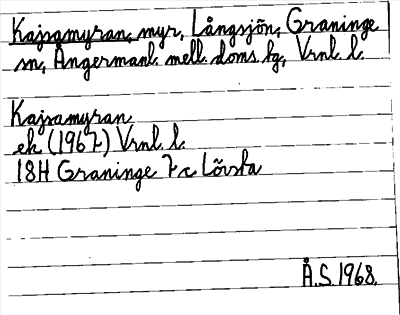 Kajsamyran, myr, Långsjön, Graninge
sn, Ångermanl. mell. doms. fg, Vrnl. l.
Kajsamyran
ek (1967) Vrnl. l.
18H Graninge 7c Lövsta
Å.S. 1968.